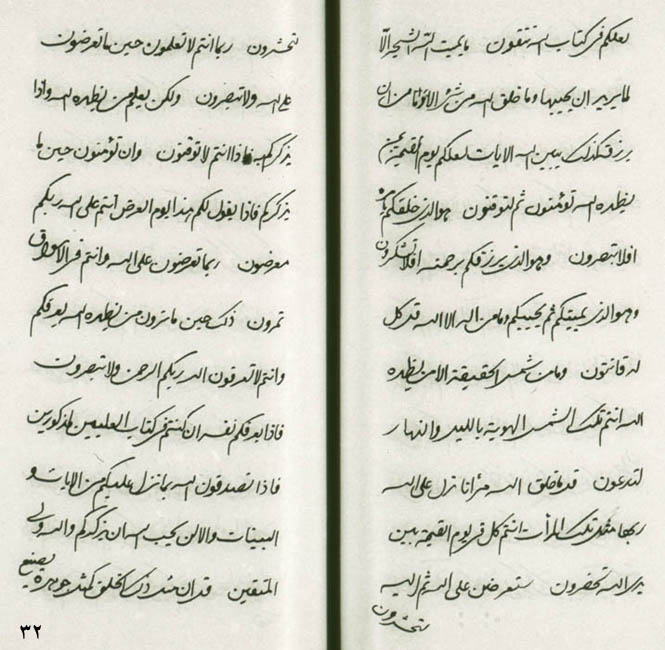 لعلكم في كتاب الله تتقون ما يميت الله الشجر الا
لما يريد ان يحييها وما خلق الله من شيء الا وانا من ان
يرزق كذلك يبين الله الايات لعلكم يوم القيمة عن
يظهره الله تؤمنون ثم لتوقنون هو الذي خلقكم
افلا تبصرون وهو الذي يرزقكم برحمته افلا تشكرون
وهو الذي يميتكم ثم يحييكم وما من اله الا الله قل كل
له قانتون وما من شمس الحقيقة الا من يظهره
الله انتم تلك الشمس الهوية بالليل والنهار
لتدعون قد ما خلق الله مرآتا نزل على الله
ربها مثل تلك المرآت انتم كل في يوم القيمة بين
يدي الله تحضرون ستعرض على الله ثم اليه
تحشرون
لتحشرون ربما انتم لا تعلمون حين ما تعرضون
على الله ولا تبصرون ولكن يعلم من يظهره الله واذا
يذكركم به فاذا انتم لا توقنون وان تؤمنون حين ما
يذكركم فاذا يقول لكم هذا يوم العرض انتم على الله ربكم
معرضون ربما تعرضون على الله وانتم في الاسواق
تمرون ذلك حين ما ترون من يظهره الله يعرفكم
وانتم لا تعرفون الله ربكم الرحمن ولا تبصرون
فاذا يعرفكم نفسه ان كنتم في كتاب العليين لمذكورين
فاذا تصدقون الله بما تنزل عليكم من الايات و
البينات والا لن يحب الله ان يذكركم والله ولي
المتقين قد ان مثل ذلك الخلق كمثل جوهرة يصنع
٣٢